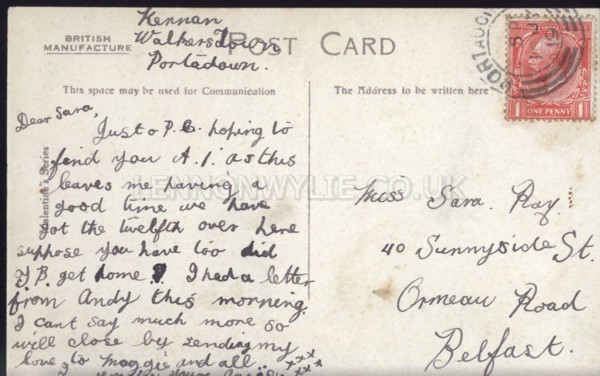 Kennan
Walkerstown
Portadown.
BRITISH
MANUFACTURE
POST CARD
This space may be used for Communication
The Address to be written here
PORTADOWN
ONE PENNY
1
1
Valentine's Series
LENNONWYLIE.CO.UK
Dear Sara,
Just a P.C. hoping to
find you A.1. as this
leaves me having a
good time we have
got the twelfth over here
suppose you have too did
J.B. get home ? I had a letter
from Andy this morning.
I cant say much more so
will close by sending my
love to Maggie and all.. xxx
Miss Sara. Ray.
40 Sunnyside St.
Ormeau Road
Belfast.